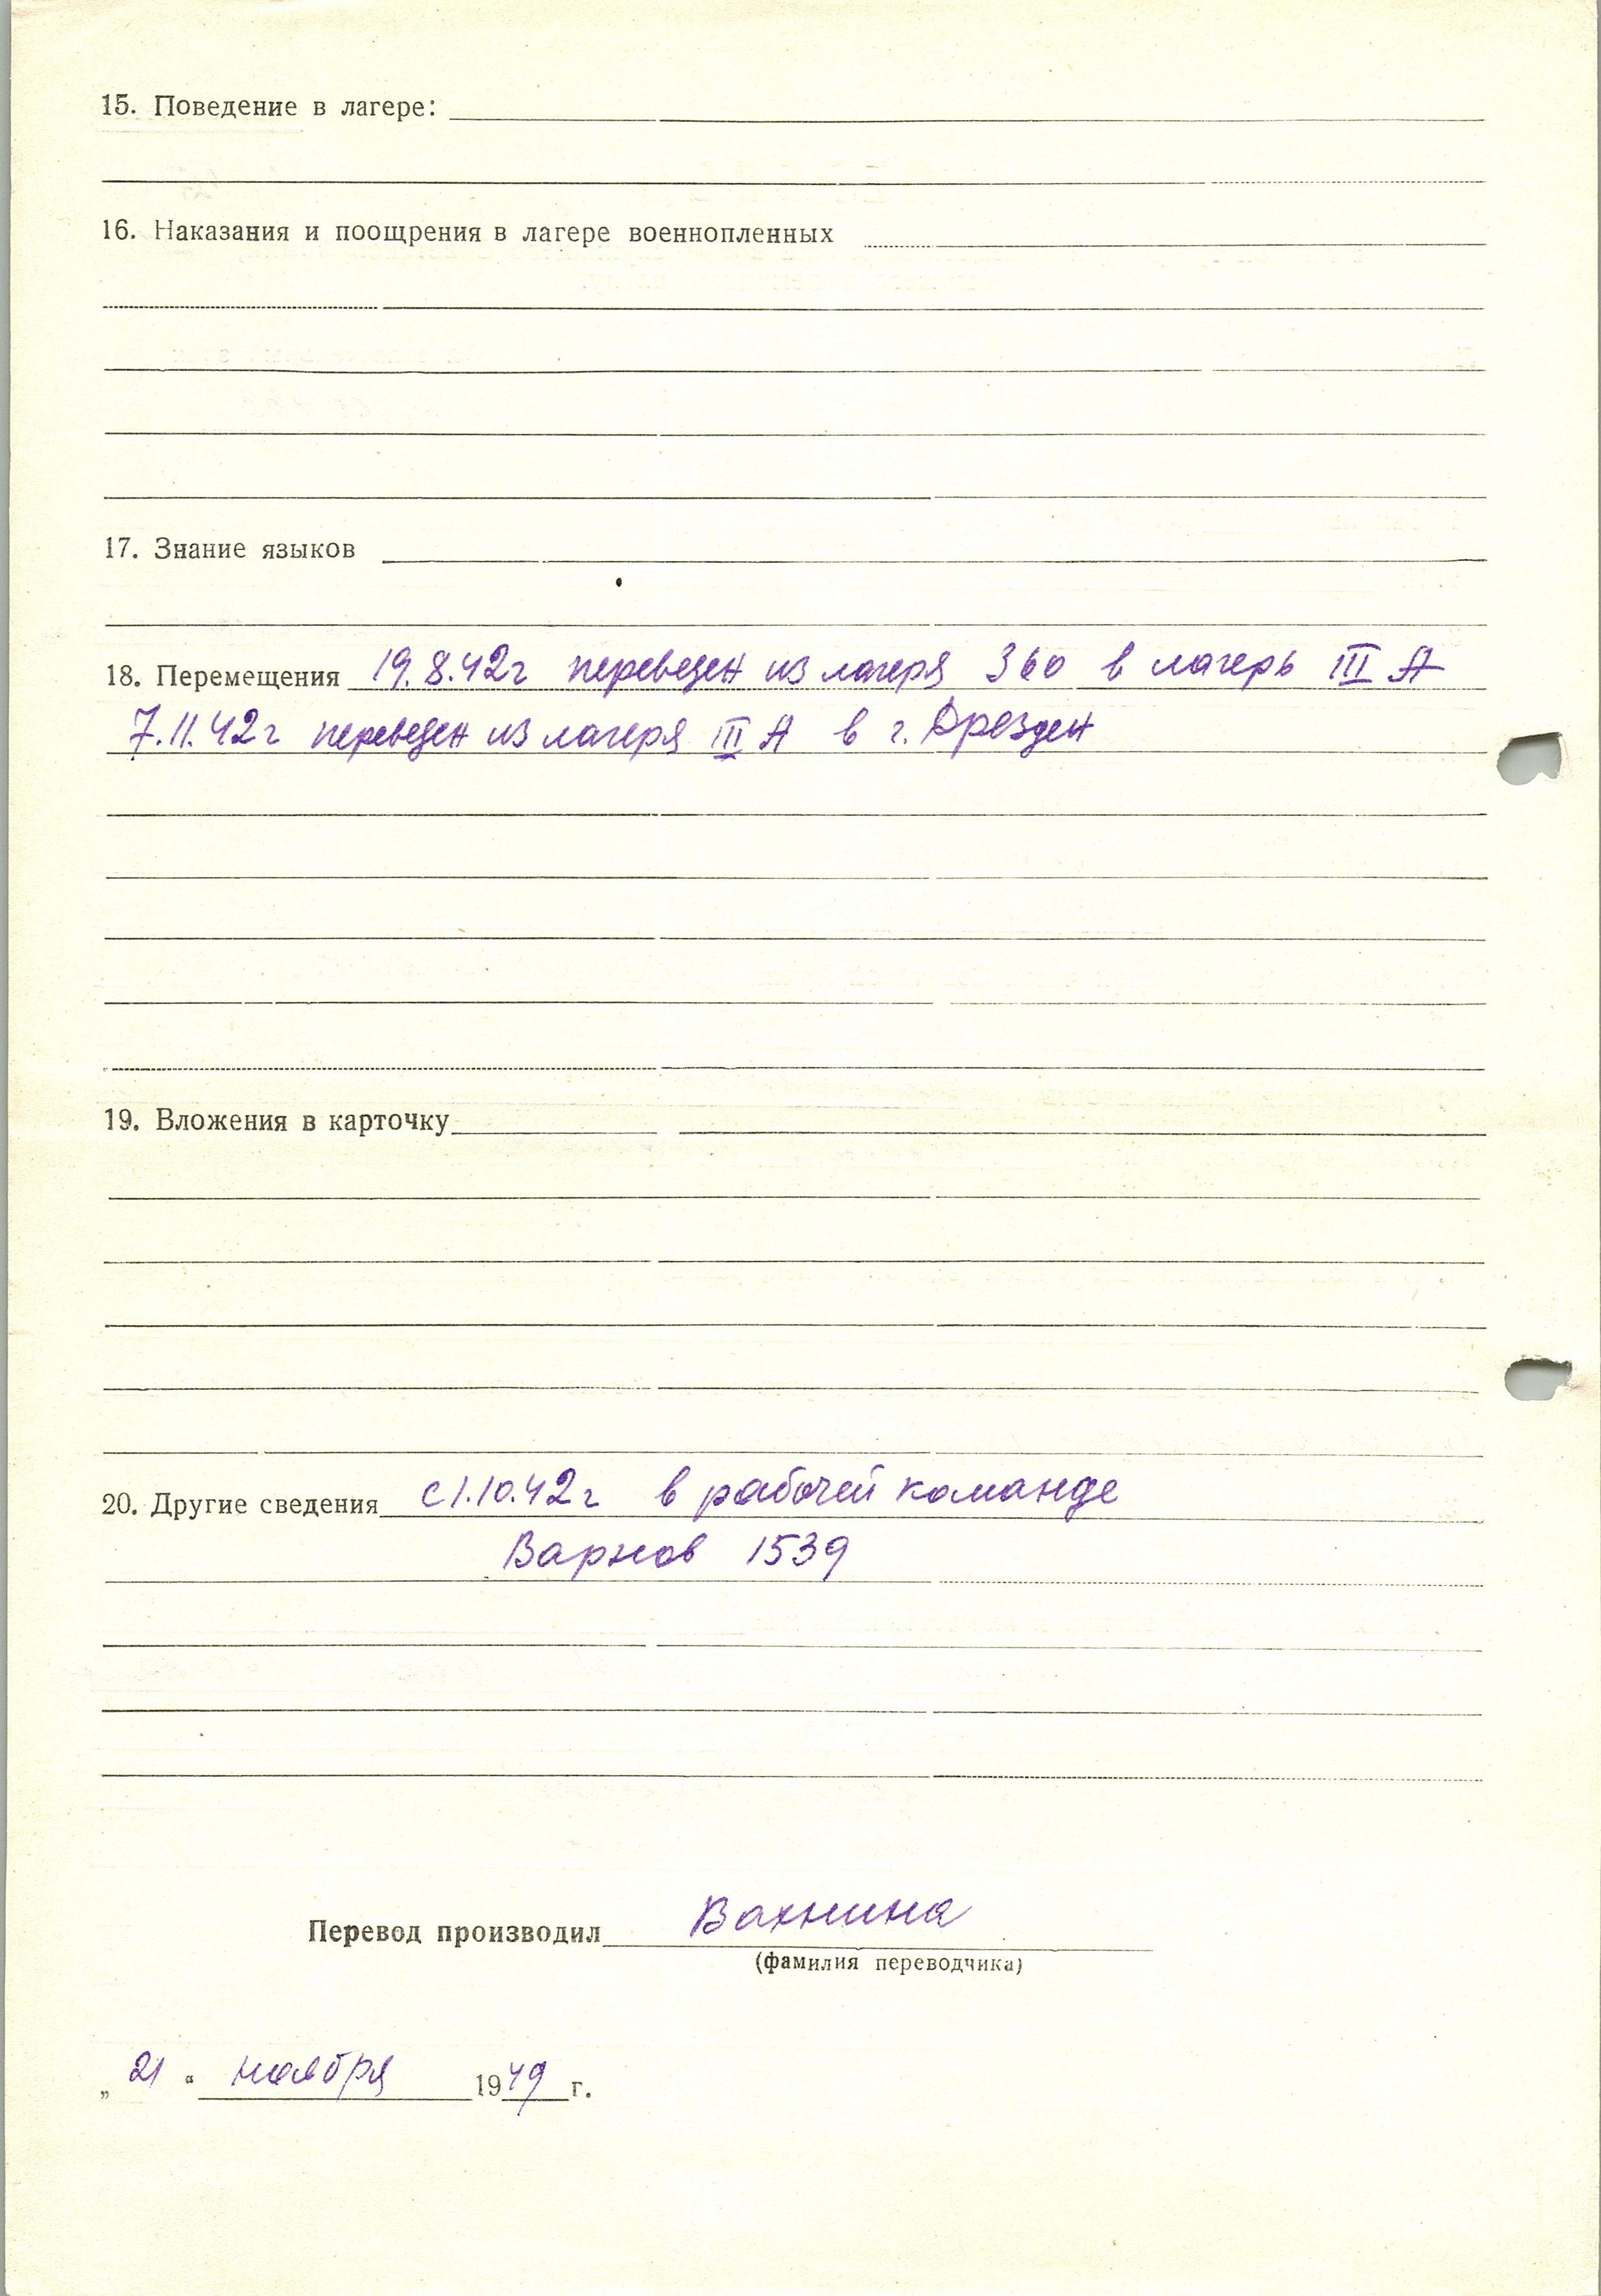 15. Поведение в лагере:
16. Наказания и поощрения в лагере военнопленных
17. Знание языков
18. Перемещения 19.8.42г переведен из лагеря 360 в лагерь III А
7.11.42г переведен из лагеря III А в г. Дрезден
19. Вложения в карточку
20. Другие сведения с 1.10.42г в рабочей команде
Варнов 1539
Перевод производил Вахнина
(фамилия переводчика)
„ 21 “ ноября 1949 г.